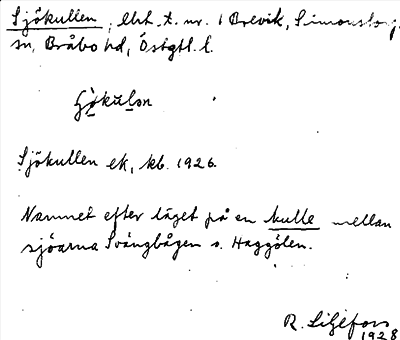 Sjökullen, lht. t. nr. 1 Brevik, Simonstorps
sn, Bråbo hd, Östgtl. l.
Sjökullen ek, kb. 1926.
Namnet efter läget på en kulle mellan
sjöarna Svängbågen o. Haggölen.
R. Liljefors
1928